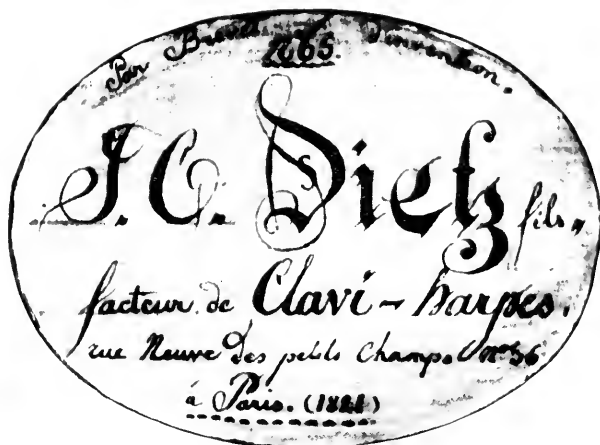 Par Brevet d'invention.
J. C. Dietz fils,,
facteur de Clavi-harpes.
rue Neuve des petits Champs nº 36
à Paris. (1821)